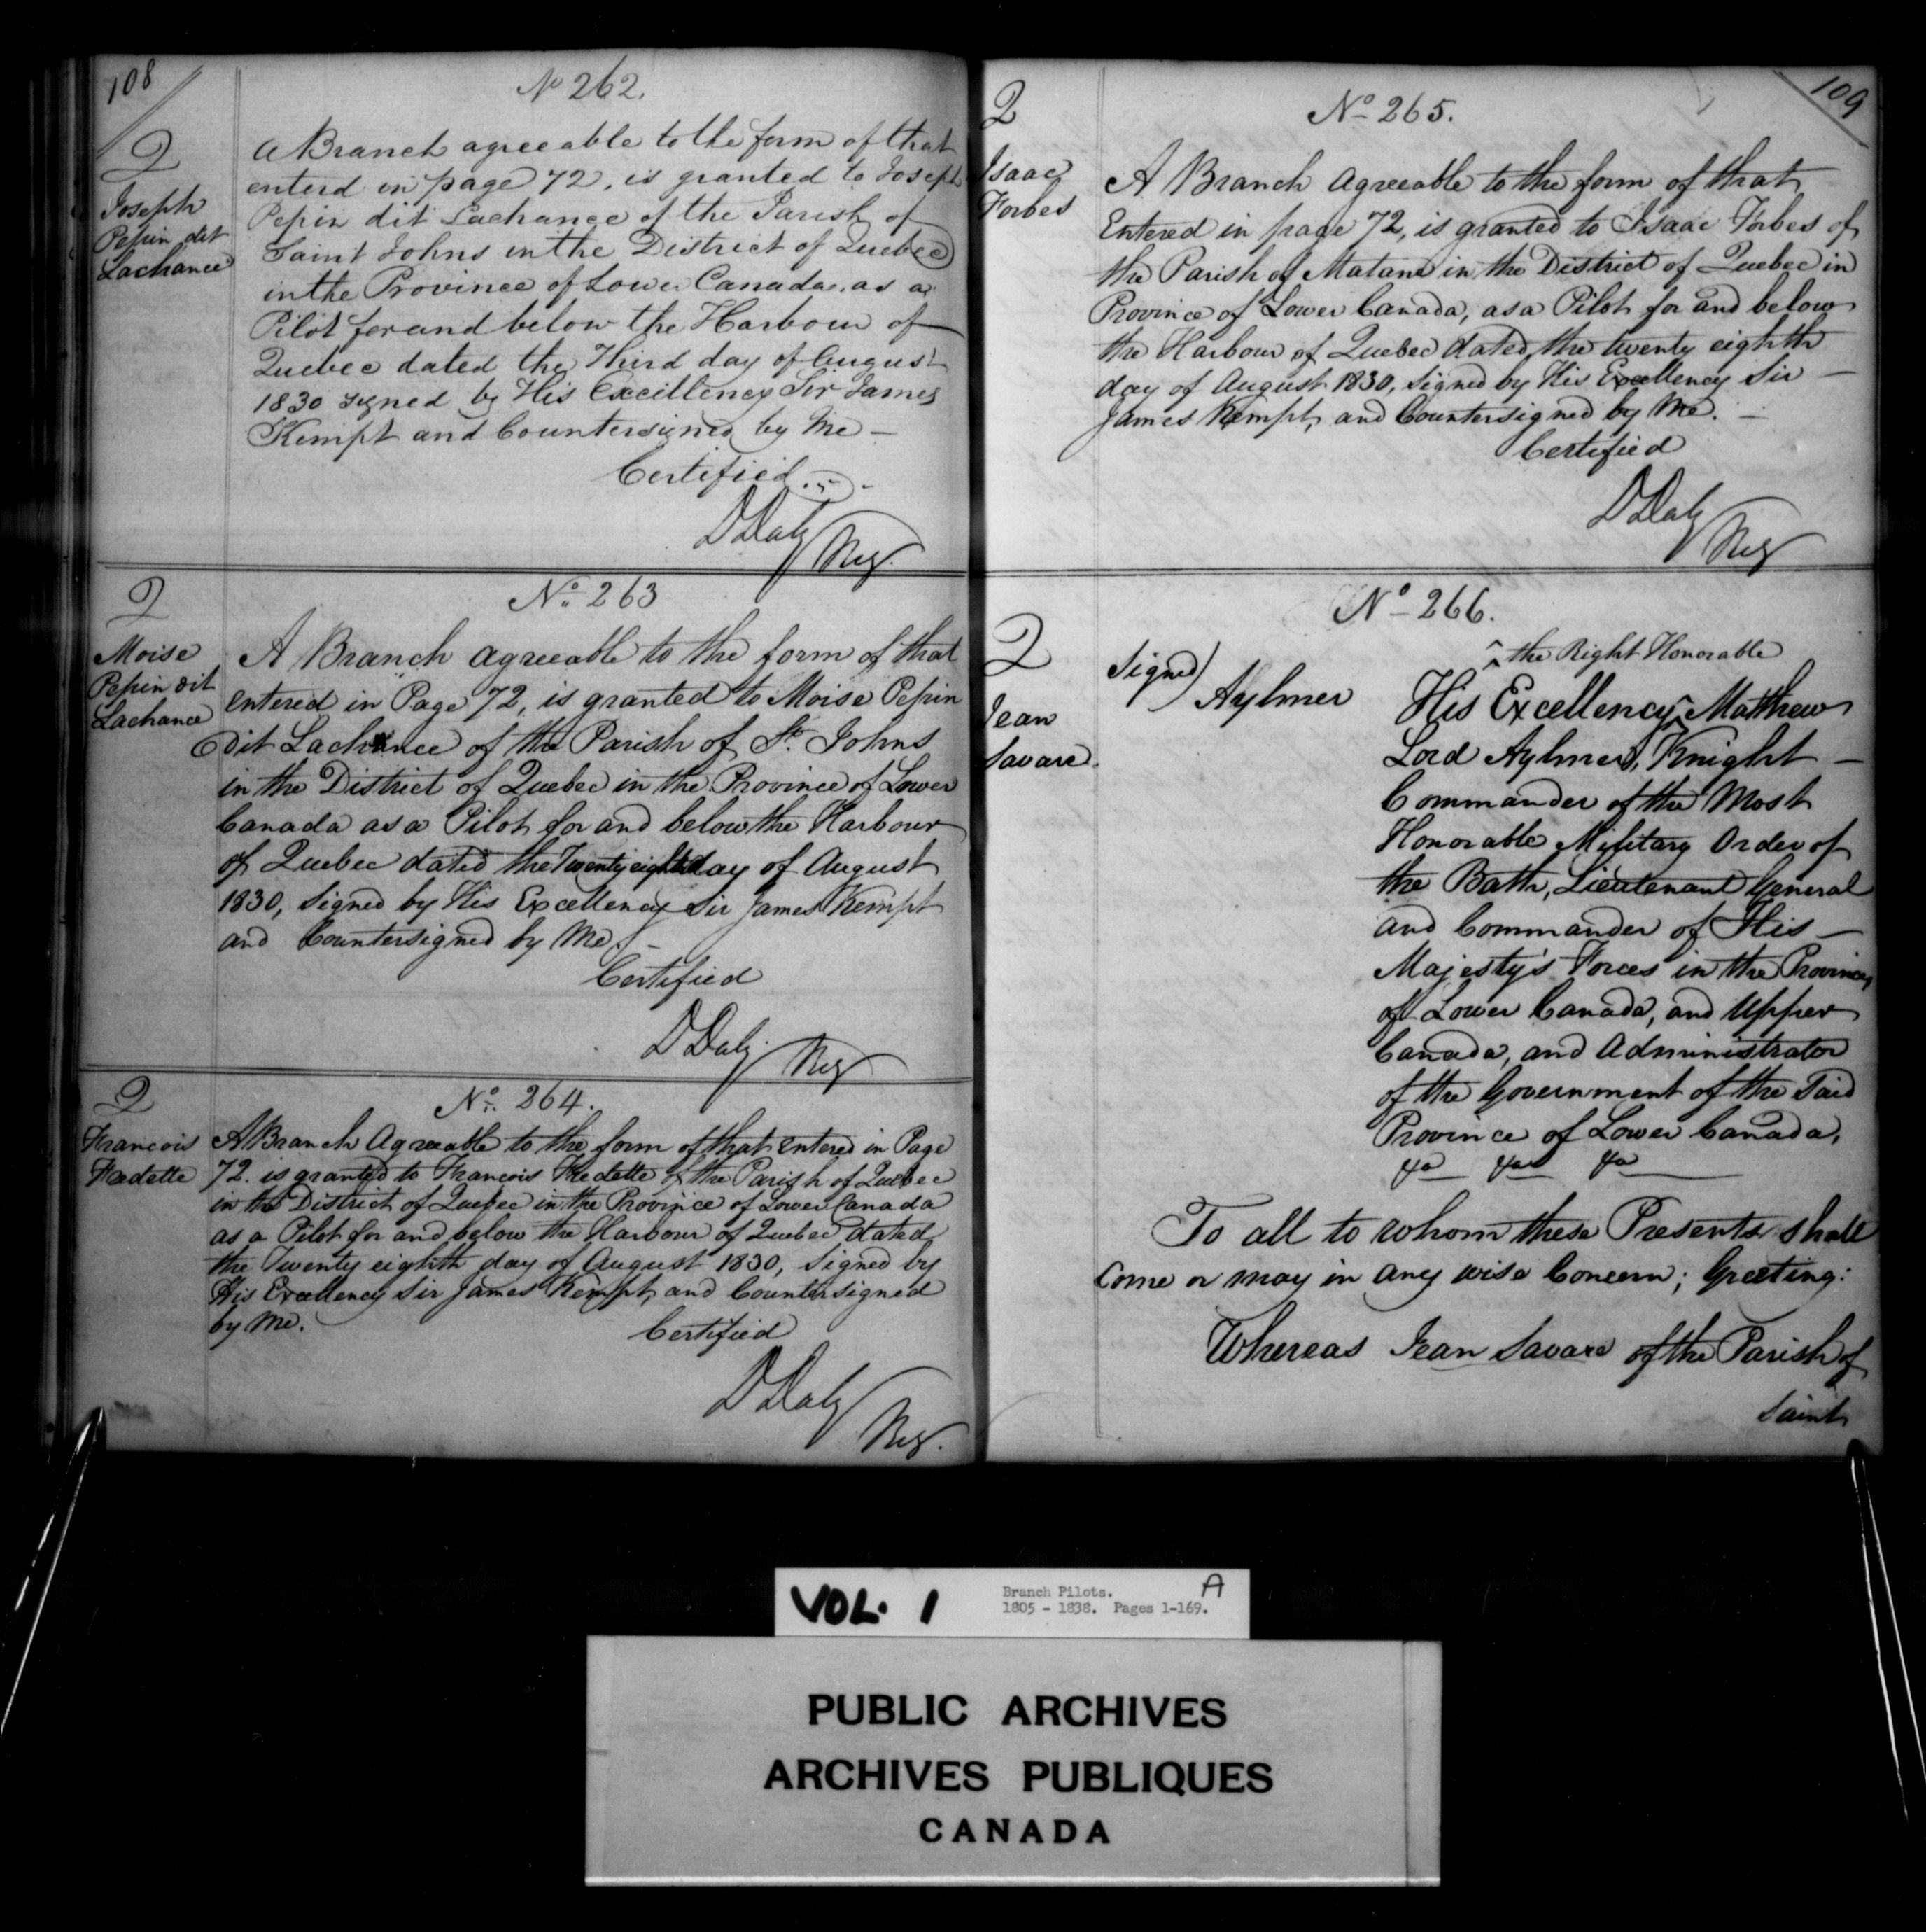 108
No 262.
2
Joseph
Pepin dit
Lachance
A Branch agreeable to the form of that
enterd in page 72, is granted to Joseph
Pepin dit Lachance of the Parish of
Saint Johns in the District of Quebec
in the Province of Lower Canada, as a
Pilot for and below the Harbour of
Quebec dated the Third day of August
1830 signed by His Excellency Sir James
Kempt and Countersigned by Me —
Certified
D Daly
Reg.
No. 263
2
Moise
Pepin dit
Lachance
A Branch agreeable to the form of that
entered in Page 72, is granted to Moise Pepin
dit Lachance of the Parish of St. Johns
in the District of Quebec in the Province of Lower
Canada as a Pilot for and below the Harbour
of Quebec dated the Twenty eighth day of August
1830, Signed by His Excellency Sir James Kempt
and Countersigned by Me. —
Certified
D Daly
Reg
No. 264.
2
Francois
Fradette
A Branch Agreeable to the form of that entered in Page
72. is granted to Francois Fredette of the Parish of Quebec
in the District of Quebec in the Province of Lower Canada
as a Pilot for and below the Harbour of Quebec dated
the Twenty eighth day of August 1830, Signed by
His Excellency Sir James Kempt, and Countersigned
by Me.
Certified
D Daly
Reg.
109
No 265.
2
Isaac
Forbes
A Branch Agreeable to the form of that
Entered in page 72, is granted to Isaac Forbes of
the Parish of Matane in the District of Quebec in
Province of Lower Canada, as a Pilot for and below
the Harbour of Quebec dated the twenty eighth
day of August 1830, Signed by His Excellency Sir —
James Kempt, and Countersigned by Me. —
Certified
D Daly
Reg
No 266.
2
Jean
Savard.
Signed)
Aylmer
^ the Right Honorable
His Excellency ^ Matthew
Lord Aylmer, Knight —
Commander of the Most
Honorable Military Order of
the Bath, Lieutenant General
and Commander of His —
Majesty's Forces in the Provinces
of Lower Canada, and Upper
Canada, and Administrator
of the Government of the Said
Province of Lower Canada,
&a &a &a
To all to whom these Presents shall
Come or may in any wise Concern; Greeting:
Whereas Jean Savard of the Parish of
Saint
VOL. 1
Branch Pilots.
1805 - 1838. Pages 1-169.
A
PUBLIC ARCHIVES
ARCHIVES PUBLIQUES
CANADA